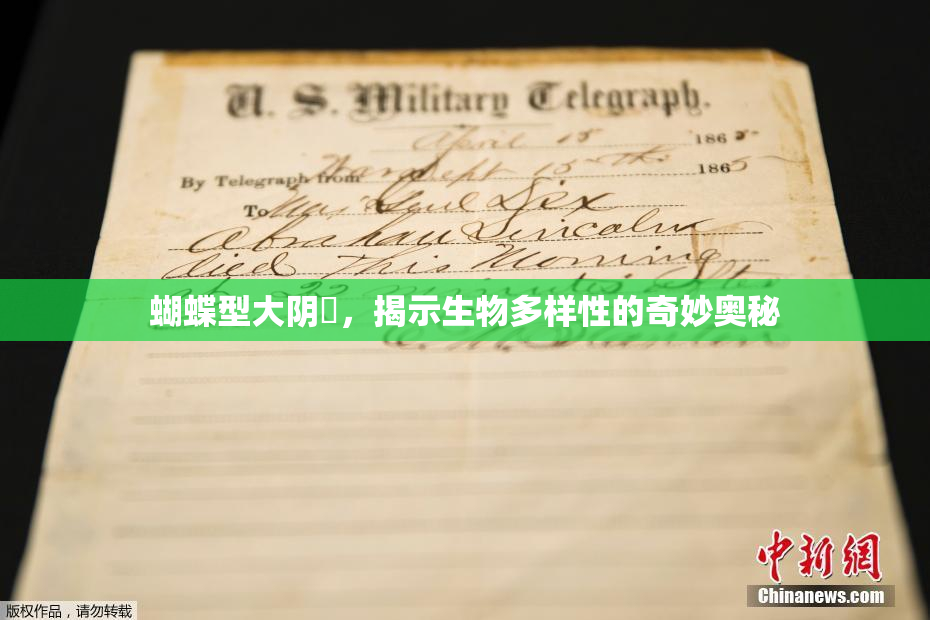 U. S. Military Telegraph.
April 15 1865
By Telegraph from War Dept 15th 1865
To Maj Genl Dix
Abraham Lincoln
died This Morning
at 22 minutes after
蝴蝶型大阴▯，揭示生物多样性的奇妙奥秘
E. M. Stanton
中新网
Chinanews.com
版权作品，请勿转载